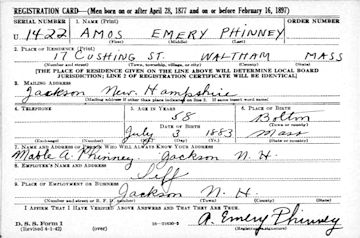 REGISTRATION CARD—(Men born on or after April 28, 1877 and on or before February 16, 1897)
SERIAL NUMBER 1. NAME (Print) ORDER NUMBER
U 1422 AMOS EMERY PHINNEY
(First) (Middle) (Last)
2. PLACE OF RESIDENCE (Print)
17 CUSHING ST. WALTHAM MASS
(Number and street) (Town, township, village, or city) (County) (State)
[THE PLACE OF RESIDENCE GIVEN ON THE LINE ABOVE WILL DETERMINE LOCAL BOARD
JURISDICTION; LINE 2 OF REGISTRATION CERTIFICATE WILL BE IDENTICAL]
3. MAILING ADDRESS
Jackson New Hampshire
[Mailing address if other than place indicated on line 2. If same insert word same]
4. TELEPHONE 5. AGE IN YEARS 6. PLACE OF BIRTH
58 Bolton
DATE OF BIRTH (Town or county)
July 3 1883 Mass
(Exchange) (Number) (Mo.) (Day) (Yr.) (State or country)
7. NAME AND ADDRESS OF PERSON WHO WILL ALWAYS KNOW YOUR ADDRESS
Mable A. Phinney. Jackson N.H.
8. EMPLOYER'S NAME AND ADDRESS
Self
9. PLACE OF EMPLOYMENT OR BUSINESS
Jackson N. H.
(Number and street or R. F. D. number) (Town) (County) (State)
I AFFIRM THAT I HAVE VERIFIED ABOVE ANSWERS AND THAT THEY ARE TRUE.
D. S. S. Form 1
(Revised 4-1-42) (over)
A. Emery Phinney